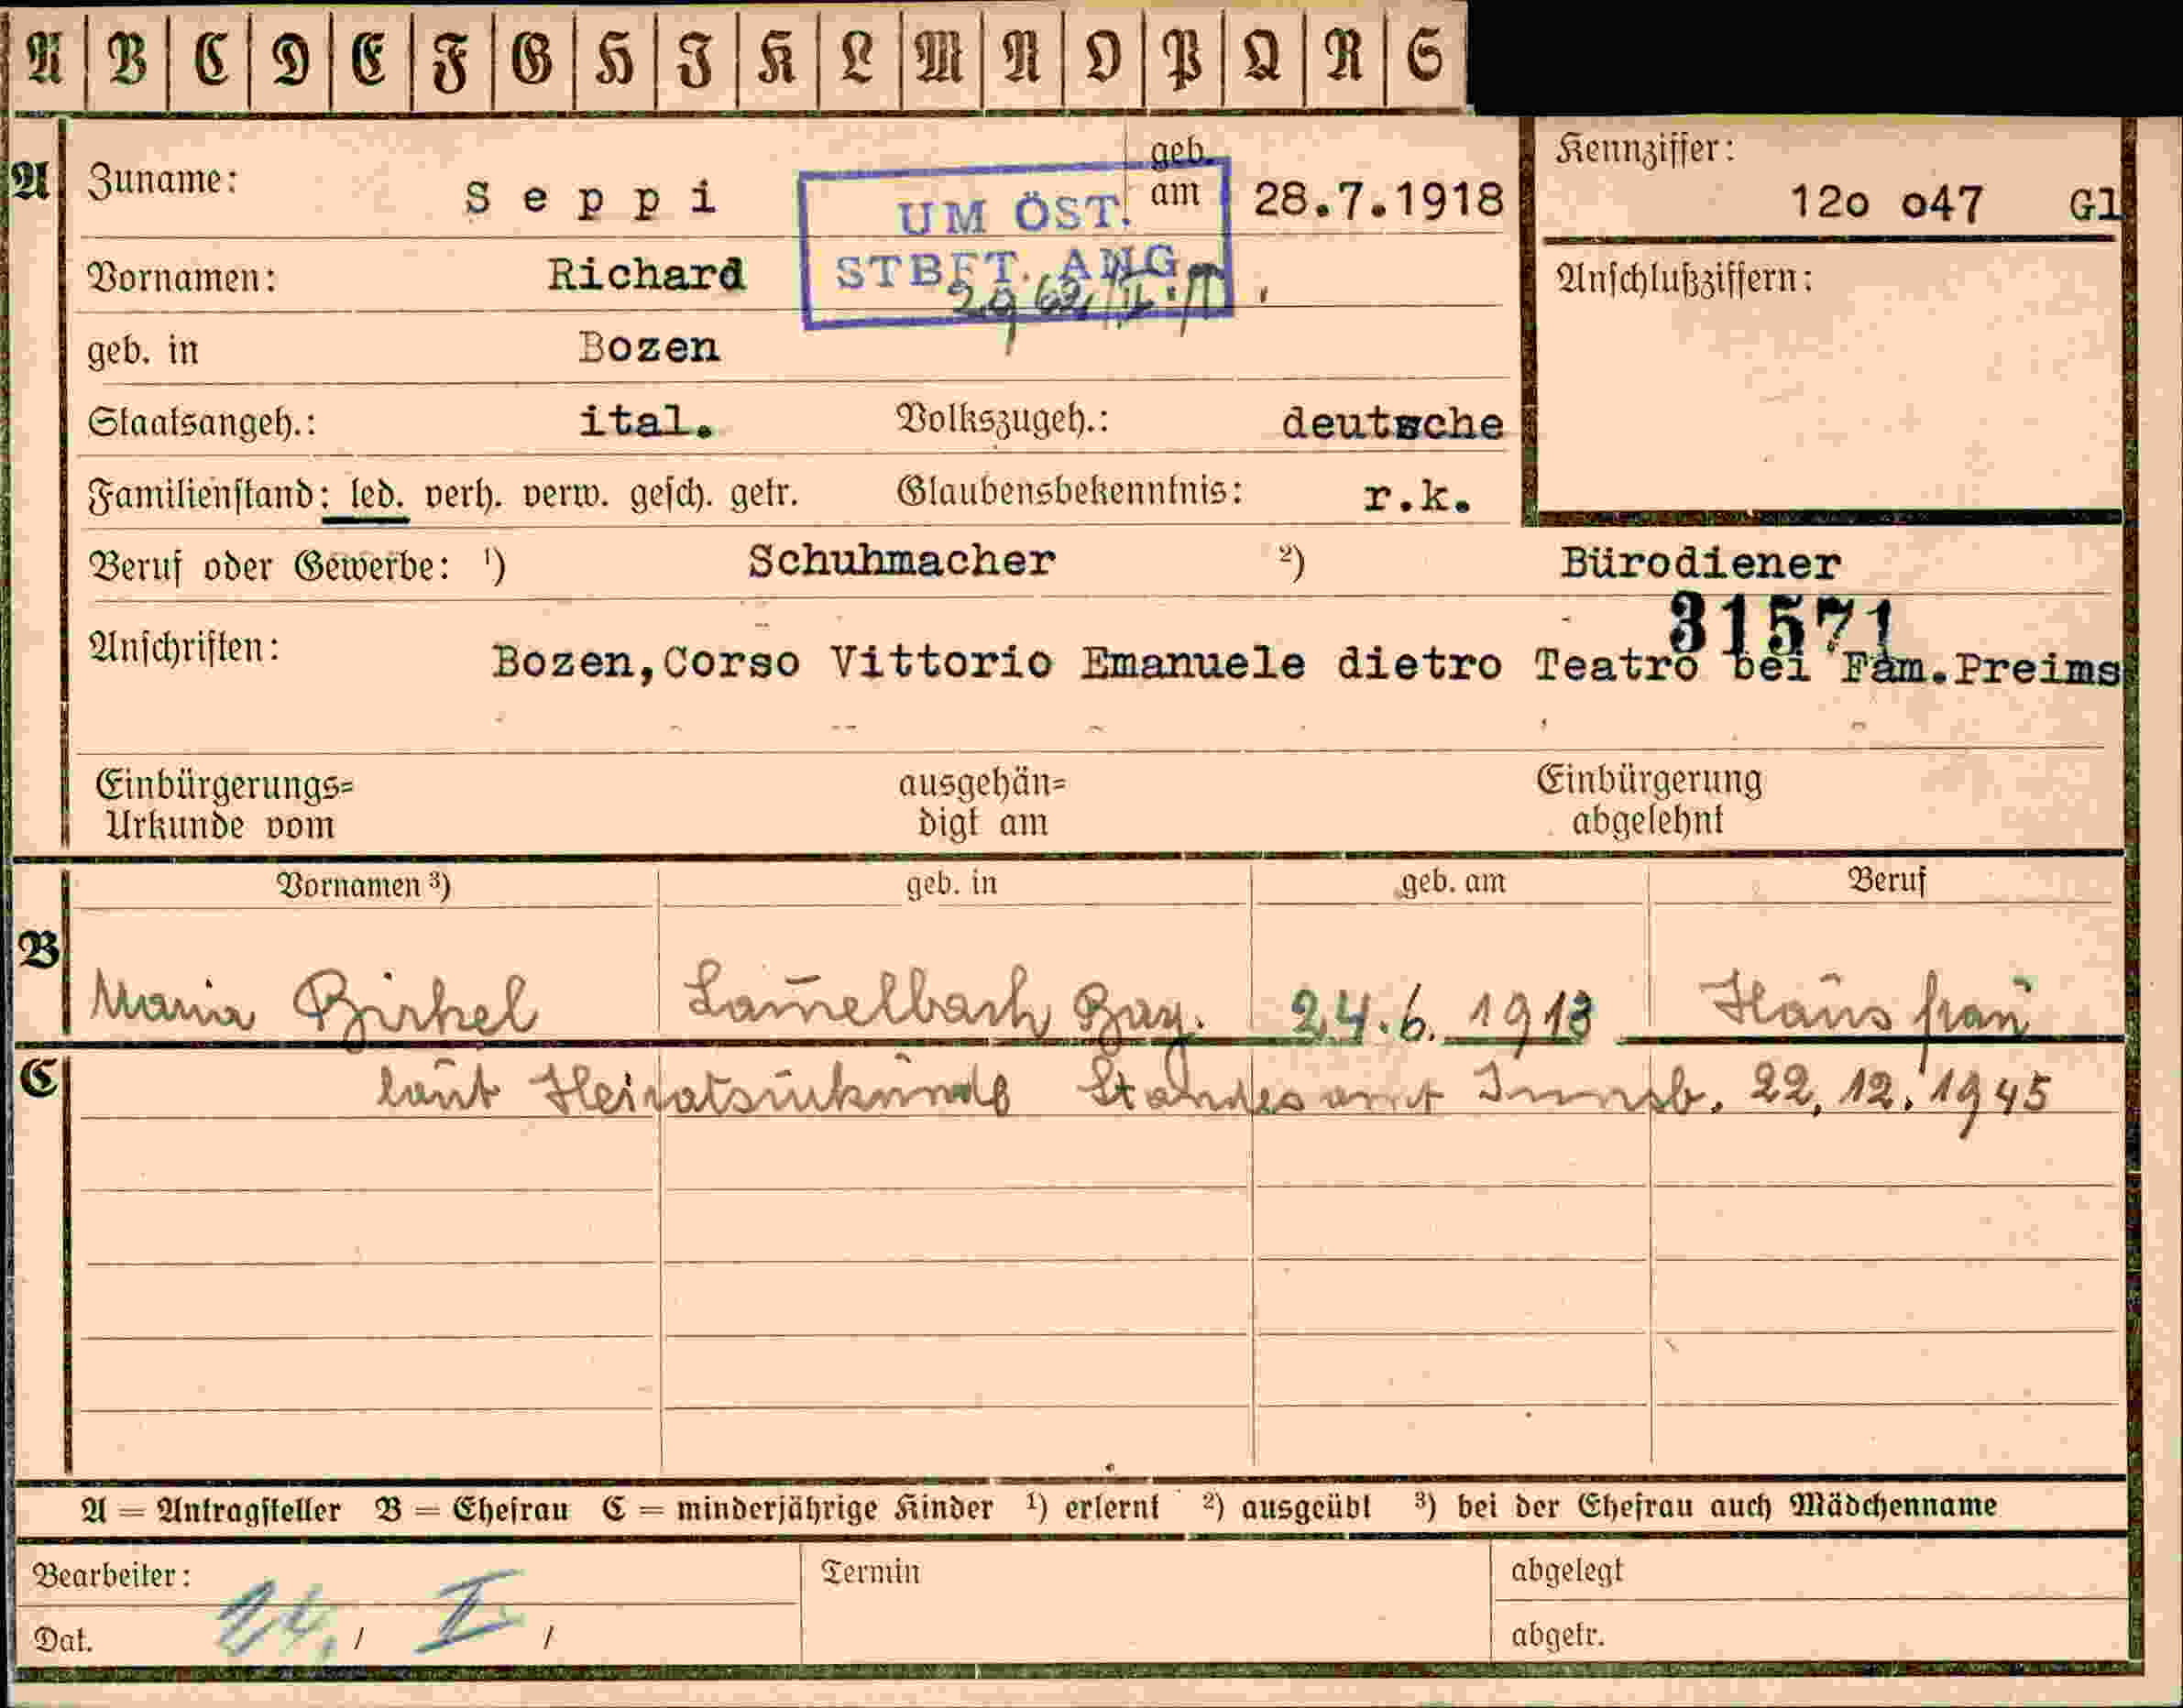 A B C D E F G H I K L M N O P Q R S
A Zuname: Seppi geb. am 28.7.1918 Kennziffer: 12o o47 Gl
UM ÖST.
STBFT. ANG
Vornamen: Richard Anschlußziffern:
geb. in Bozen
Staatsangeh.: ital. Volkszugeh.: deutsche
Familienstand: led. verh. verw. gesch. getr. Glaubensbekenntnis: r.k.
Beruf oder Gewerbe: 1) Schuhmacher 2) Bürodiener
31571
Anschriften: Bozen,Corso Vittorio Emanuele dietro Teatro bei Fam.Preims
Einbürgerungs= ausgehän= Einbürgerung
Urkunde vom digt am abgelehnt
Vornamen 3) geb. in geb. am Beruf
B Maria Birkel Bay. 24.6.1913 Hausfrau
C laut Heiratsurkunde Standesamt Innsb. 22.12.1945
A = Antragsteller B = Ehefrau C = minderjährige Kinder 1) erlernt 2) ausgeübt 3) bei der Ehefrau auch Mädchenname
Bearbeiter: Termin abgelegt
Dat. 24. / II / abgetr.